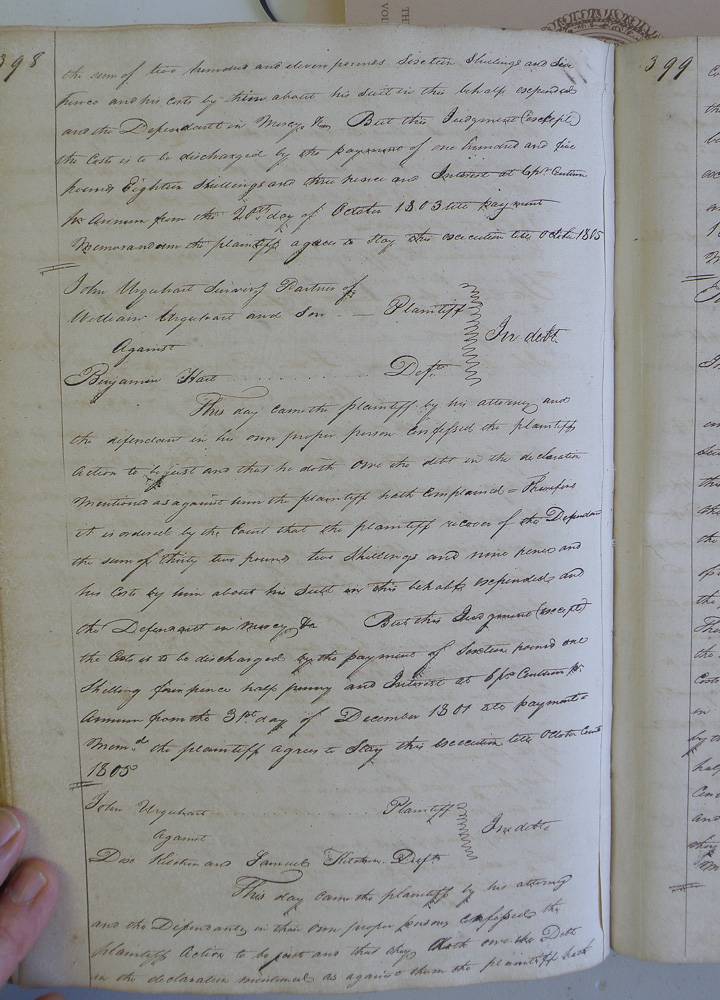 398
the sum of two hundred and eleven pounds Sixteen Shillings and Six
pence and his Costs by him about his suit in this behalf expended
and the Defendant in Mercy &c But this Judgment (except)
the Costs is to be discharged by the payment of one hundred and five
pounds Eighteen Shillings and three pence and Interest at 6 pr Centum
pr Annum from the 20th day of October 1803 till payment
Memorandum the plaintiff agrees to Stay this execution till October 1805
John Urquhart Surving Partner of
William Urquhart and Son — Plaintiff
In debt
Against
Benjamin Hart Deft
This day came the plaintiff by his attorney and
the defendant in his own proper person Confessed the plaintiffs
Action to be just and that he doth owe the debt in the declaration
Mentioned as against him the plaintiff hath Complained = Therefore
it is ordered by the Court that the plaintiff recover of the Defendant
the sum of thirty two pounds two Shillings and nine pence and
his Costs by him about his Suit in this behalf expended and
the Defendant in Mercy &c But this Judgment (except)
the Costs is to be discharged by the payment of Sixteen pounds one
Shilling four pence half penny and Interest at 6 pr Centum pr
Annum from the 31st day of December 1801 till payment
Memd the plaintiff agrees to Stay this execution till October Court
1805
John Urquhart Plaintiff
In debt
Against
and Samuel Defts
This day came the plaintiff by his attorney
and the Defendants in their own proper persons Confessed the
plaintiffs Action to be just and that they doth owe the Debt
in the declaration mentioned as against them the plaintiff hath
399